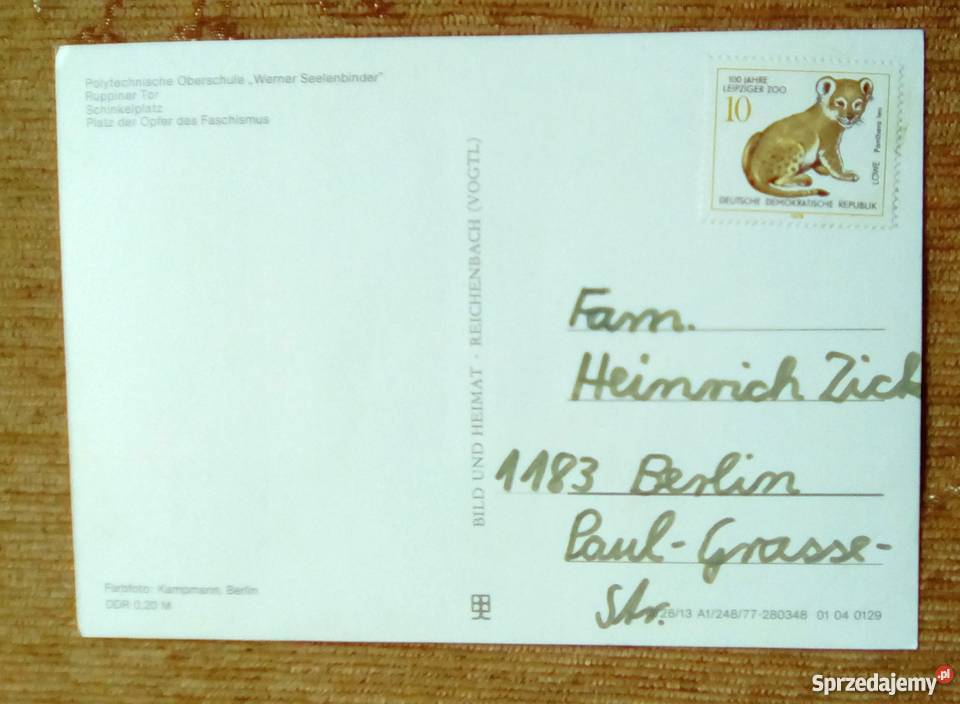 Polytechnische Oberschule „Werner Seelenbinder"
Ruppiner Tor
Schinkelplatz
Platz der Opfer des Faschismus
100 JAHRE
LEIPZIGER ZOO
10
LÖWE Panthera leo
DEUTSCHE DEMOKRATISCHE REPUBLIK
BILD UND HEIMAT · REICHENBACH (VOGTL)
Fam.
Heinrich Zick
1183 Berlin
Paul-Grasse-
Str.
Farbfoto: Kampmann, Berlin
DDR 0,20 M
26/13 A1/248/77-280348 01 04 0129
Sprzedajemy.pl